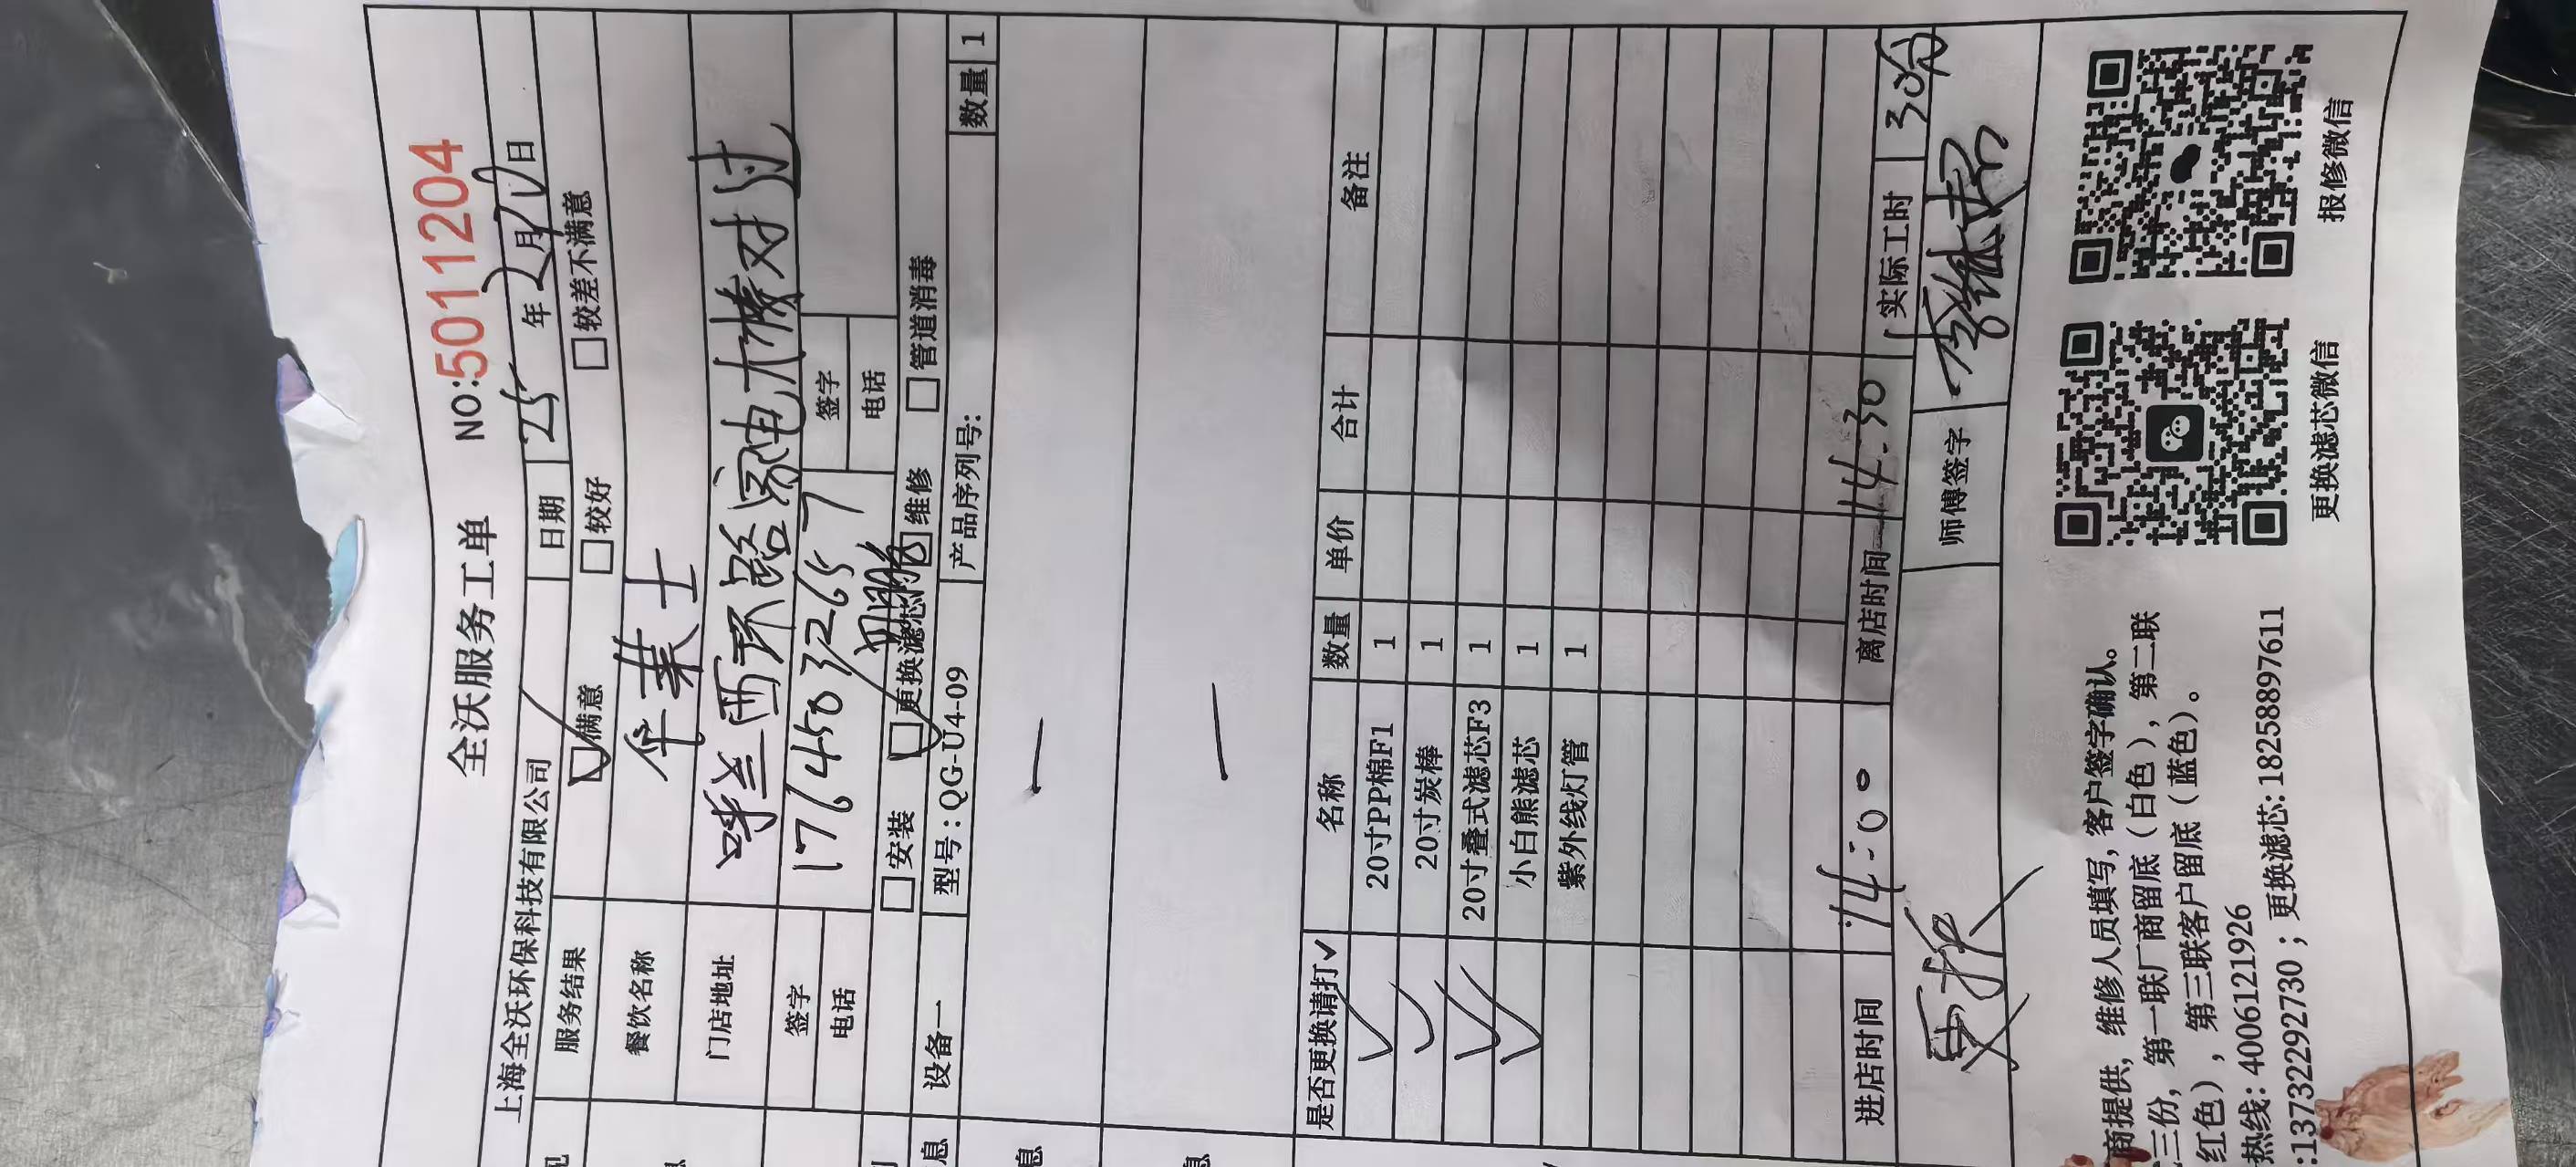 全沃服务工单
NO:5011204
上海全沃环保科技有限公司 日期 25 年 2 月 10 日
服务结果 满意 较好 较差不满意
餐饮名称 华莱士
门店地址 呼兰西环路家电大楼对过
签字 签字
电话 17645032657 电话
安装 更换滤芯 维修 管道消毒
设备一 型号:QG-U4-09 产品序列号: 数量 1
是否更换请打✓ 名称 数量 单价 合计 备注
✓ 20寸PP棉F1 1
✓ 20寸炭棒 1
✓ 20寸叠式滤芯F3 1
✓ 小白熊滤芯 1
紫外线灯管 1
进店时间 14:00 离店时间 14:30 实际工时 30分
师傅签字
商提供, 维修人员填写, 客户签字确认。
三份, 第一联厂商留底（白色）, 第二联
红色）, 第三联客户留底（蓝色）。
热线: 4006121926
:13732292730 ; 更换滤芯: 18258897611
更换滤芯微信 报修微信